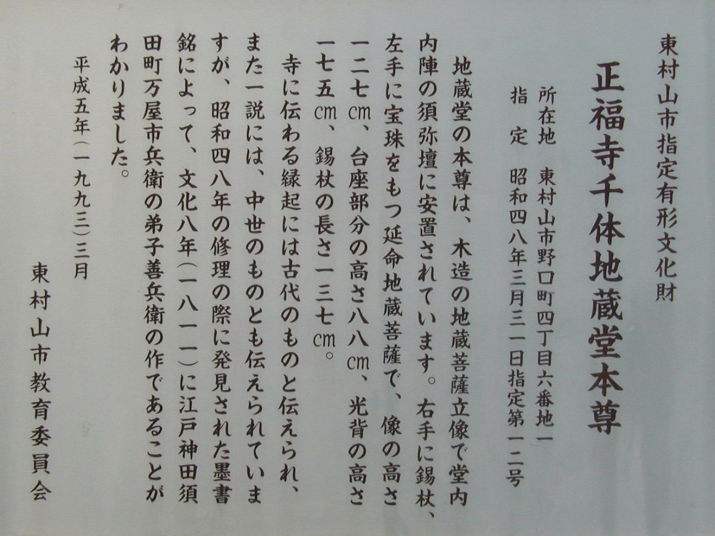 東村山市指定有形文化財
正福寺千体地蔵堂本尊
所在地　東村山市野口町四丁目六番地一
指　定　昭和四八年三月三一日指定第一二号
地蔵堂の本尊は、木造の地蔵菩薩立像で堂内
内陣の須弥壇に安置されています。右手に錫杖、
左手に宝珠をもつ延命地蔵菩薩で、像の高さ
一二七㎝、台座部分の高さ八八㎝、光背の高さ
一七五㎝、錫杖の長さ一三七㎝。
寺に伝わる縁起には古代のものと伝えられ、
また一説には、中世のものとも伝えられていま
すが、昭和四八年の修理の際に発見された墨書
銘によって、文化八年（一八一一）に江戸神田須
田町万屋市兵衛の弟子善兵衛の作であることが
わかりました。
平成五年（一九九三）三月
東村山市教育委員会